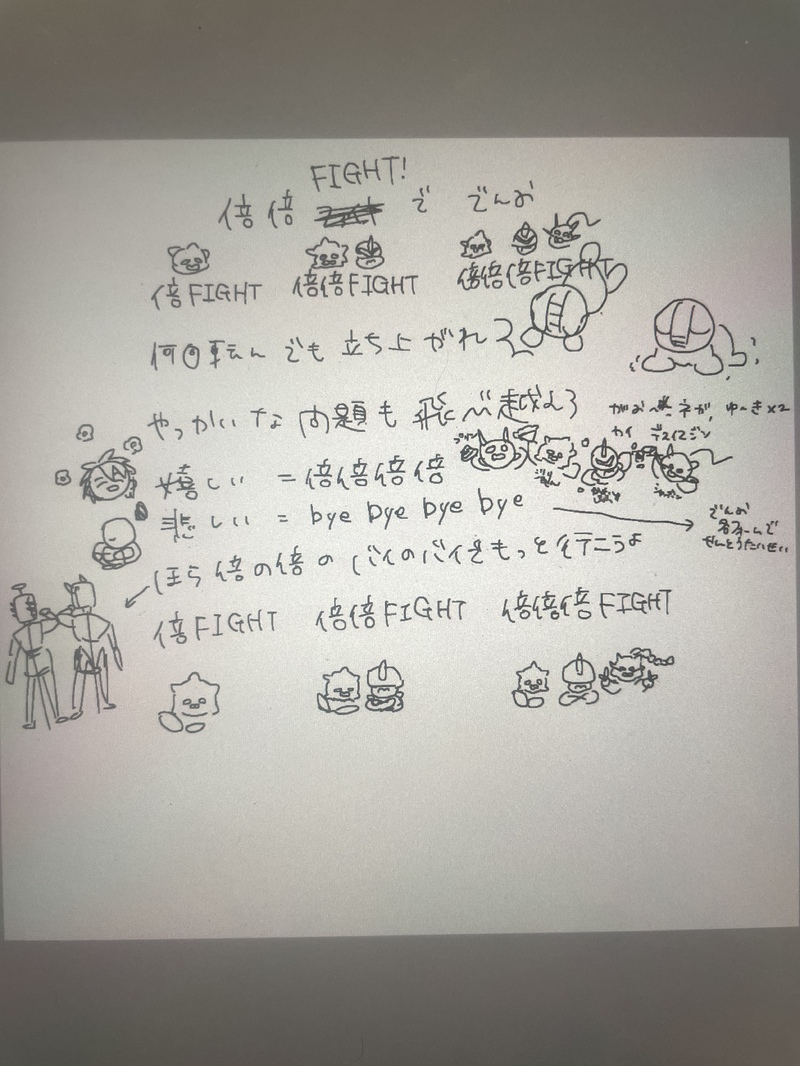 FIGHT!
倍倍 で でんお
倍FIGHT 倍倍FIGHT 倍倍倍FIGHT
何回転んでも立ち上がれ
やっかいな問題も飛べ越えろ
ゆーき×2
嬉しい =倍倍倍倍
悲しい = bye bye bye bye
でんお
各フォームで
せんとうたいせい
ほら倍の倍のバイのバイをもっと行こうよ
倍FIGHT 倍倍FIGHT 倍倍倍FIGHT